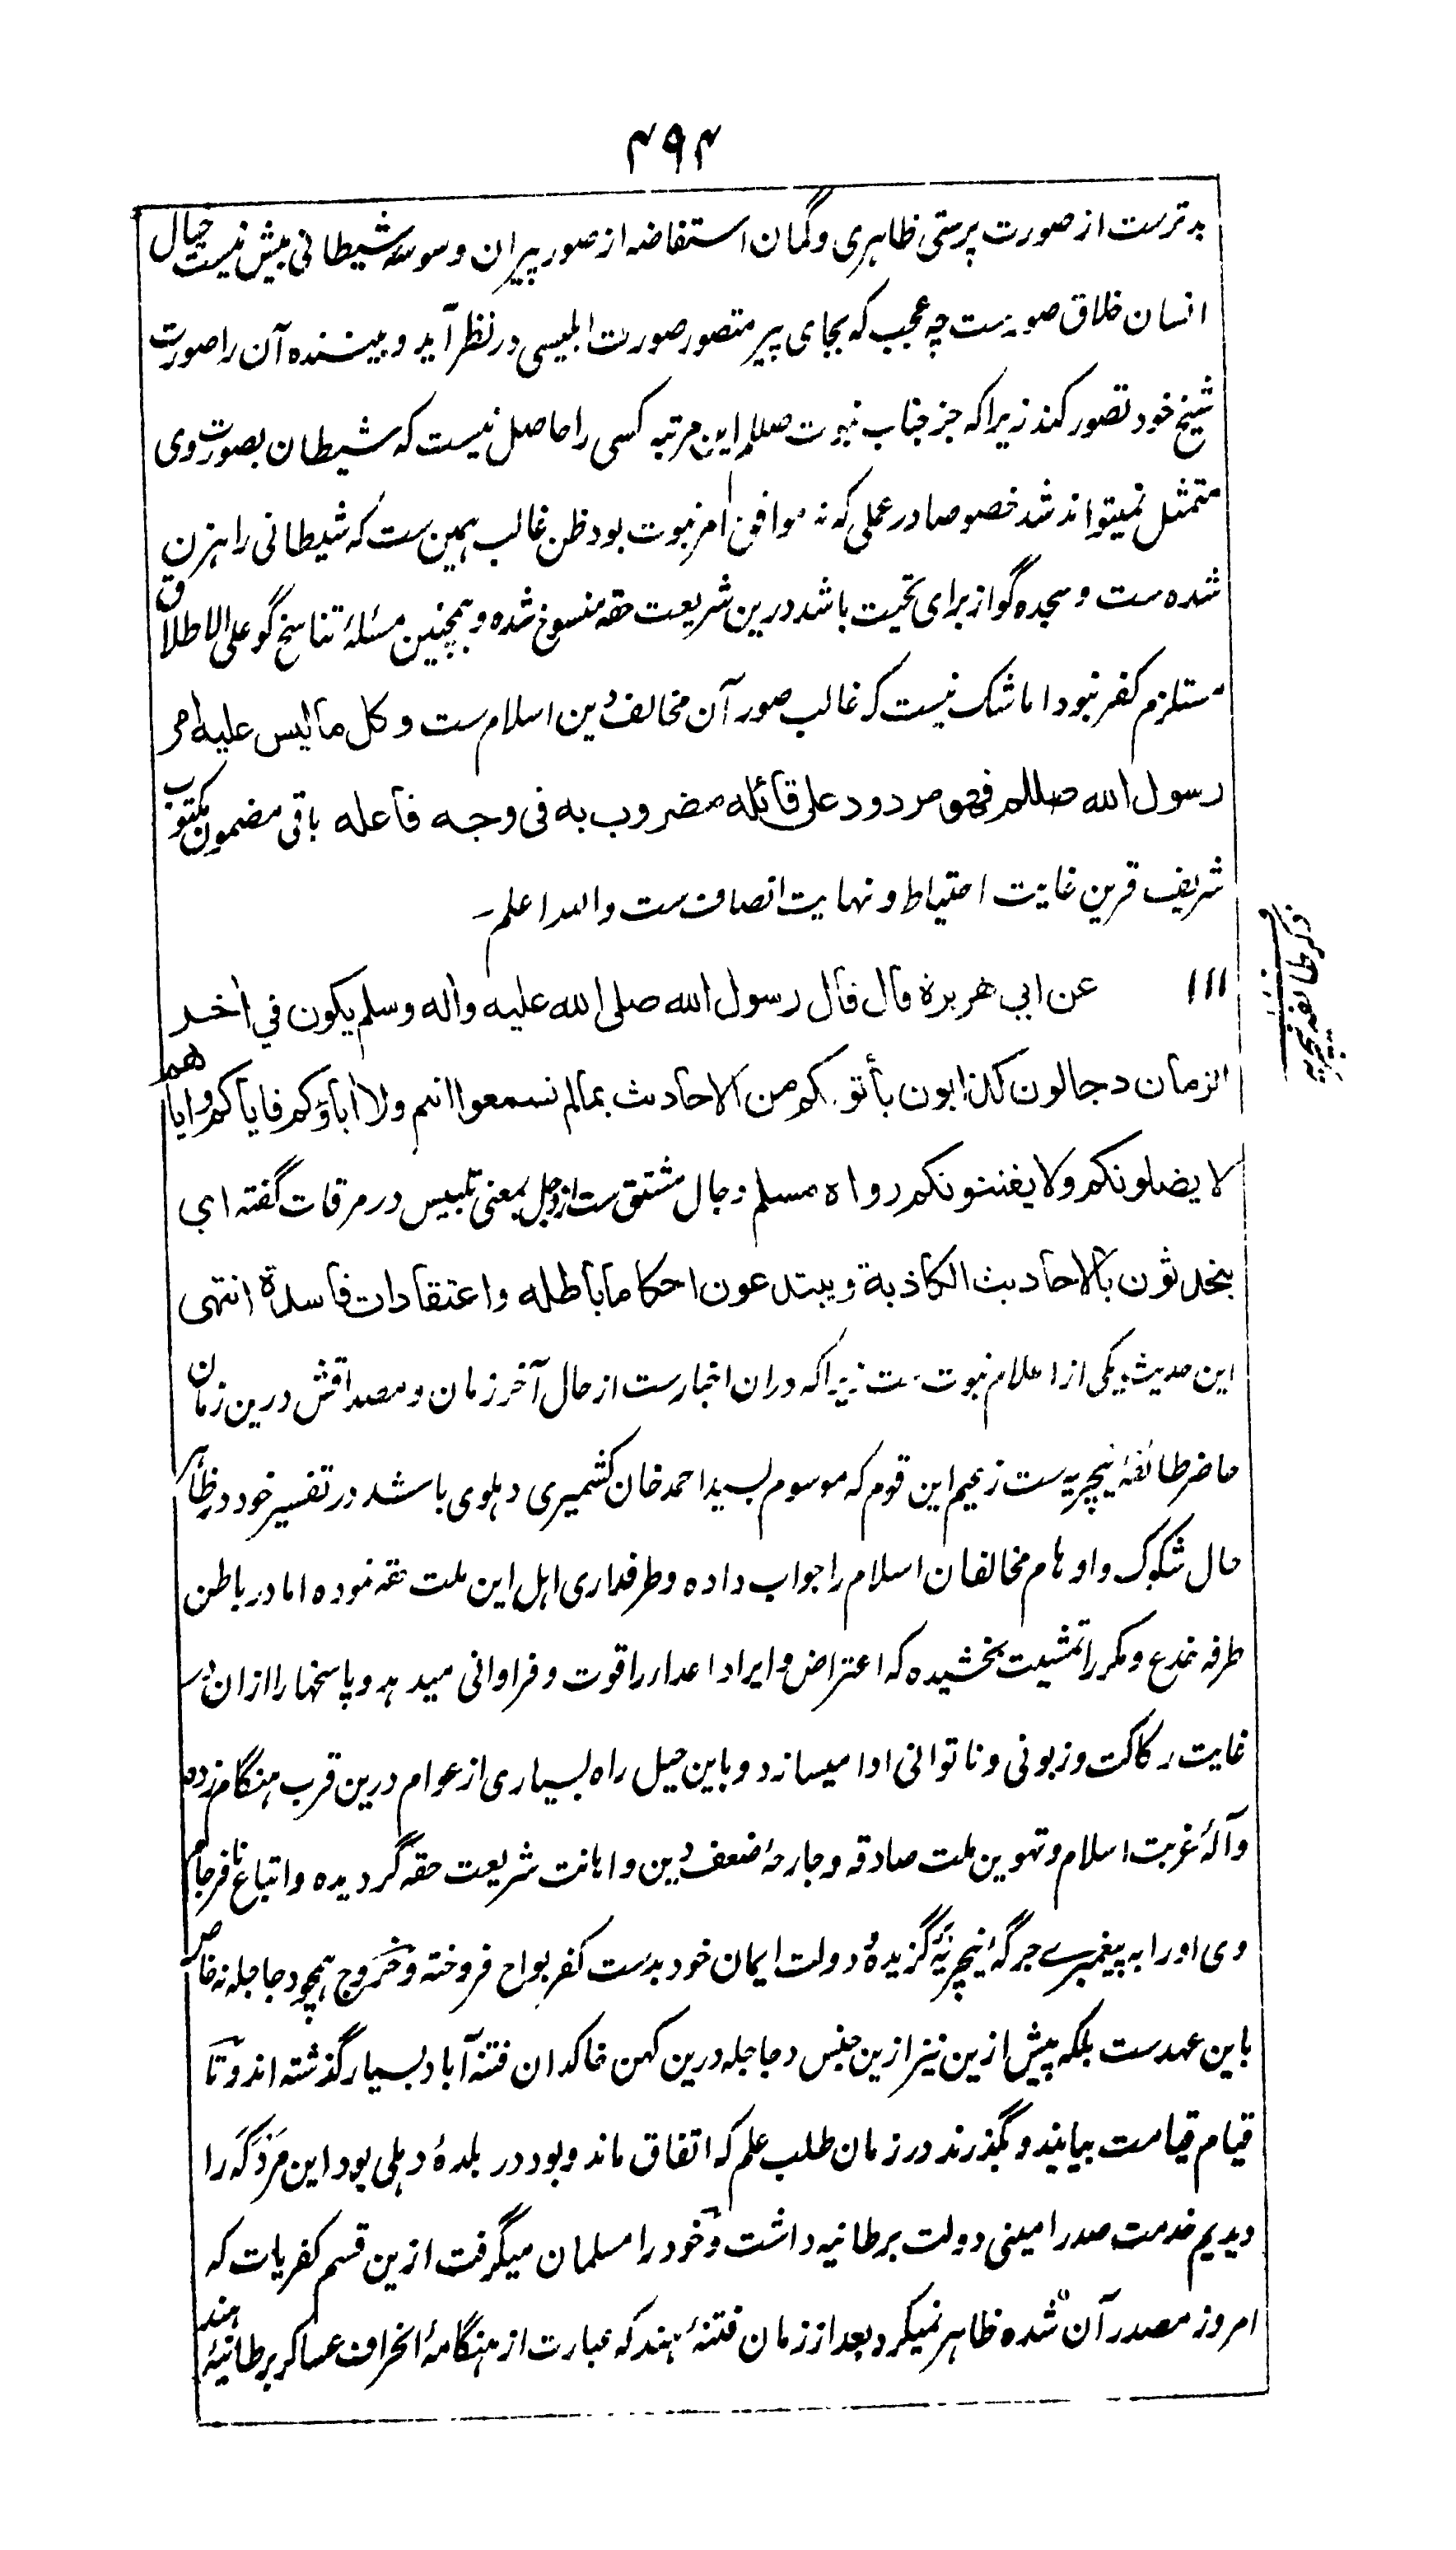 ۴۹۴
بدترست از صورت پرستی ظاہری و گمان استفاضہ از صور پیران وسوسۂ شیطانی بیش نیست خیال
انسان خلاق صورست چہ عجب کہ بجای پیر متصور صورت ابلیسی در نظر آید و بینندہ آن را صورت
شیخ خود تصور کند زیرا کہ جز جناب نبوت صللم این مرتبہ کسی را حاصل نیست کہ شیطان بصورت وی
متمثل نمیتواند شد خصوصا در عملی کہ نہ موافق امر نبوت بود ظن غالب ہمین ست کہ شیطانی راہزن
شدہ ست و سجدہ گو از برای تحیت باشد درین شریعت حقہ منسوخ شدہ و ہمچنین مسئلۂ تناسخ گو علی الاطلاق
مستلزم کفر نبود اما شک نیست کہ غالب صور آن مخالف دین اسلام ست و کل ما لیس علیہ امر
رسول اللہ صللم فھو مردود علی قائلہ مضروب بہ فی وجہ فاعلہ باقی مضمون مکتوب
شریف قرین غایت احتیاط و نہایت انصاف ست واللہ اعلم ۔
۱۱۱ عن ابی ھریرۃ قال قال رسول اللہ صلی اللہ علیہ وآلہ وسلم یکون فی اٰخر
الزمان دجالون کذابون یأتونکم من الاحادیث بمالم تسمعوا انتم ولا اٰباؤکم فایاکم وایاھم
لا یضلونکم ولا یفتنونکم رواہ مسلم دجال مشتق ست از دجل بمعنی تلبیس در مرقات گفتہ ای
یتحدثون بالاحادیث الکاذبۃ ویبتدعون احکاما باطلہ واعتقادات فاسدۃ انتہی
این حدیث یکی از اعلام نبوت ست زیرا کہ دران اخبارست از حال آخر زمان و مصداقش درین زمان
حاضر طائفۂ نیچریہ ست زعیم این قوم کہ موسوم بسید احمد خان کشمیری دہلوی باشد در تفسیر خود در ظاہر
حال شکوک و اوہام مخالفان اسلام را جواب دادہ و طرفداری اہل این ملت حقہ نمودہ اما در باطن
طرفہ خدع و مکر را تمشیت بخشیدہ کہ اعتراض و ایراد اعدا را قوت و فراوانی میدہد و پاسخہا را ازان در
غایت رکاکت و زبونی و ناتوانی ادا میسازد و باین حیل راہ بسیاری از عوام درین قرب ہنگام زدہ
و آلۂ غربت اسلام و تہوین ملت صادقہ و جارحۂ ضعف دین و اہانت شریعت حقہ گردیدہ و اتباع نافرجام
وی او را بہ پیغمبرے جرگۂ نیچریہ گزیدہ دولت ایمان خود بدست کفر بواح فروختہ و خروج ہمچو دجاجلہ نہ خاص
باین عہدست بلکہ پیش ازین نیز ازین جنس دجاجلہ درین کہن خاکدان فتنہ آباد بسیار گذشتہ اند و تا
قیام قیامت بیایند و بگذرند در زمان طلب علم کہ اتفاق ماند و بود در بلدۂ دہلی بود این مردکہ را
دیدیم خدمت صدر امینی دولت برطانیہ داشت و خود را مسلمان میگرفت ازین قسم کفریات کہ
امروز مصدر آن شدہ ظاہر نمیکرد بعد از زمان فتنۂ ہند کہ عبارت از ہنگامۂ انحراف عساکر برطانیۂ ہند